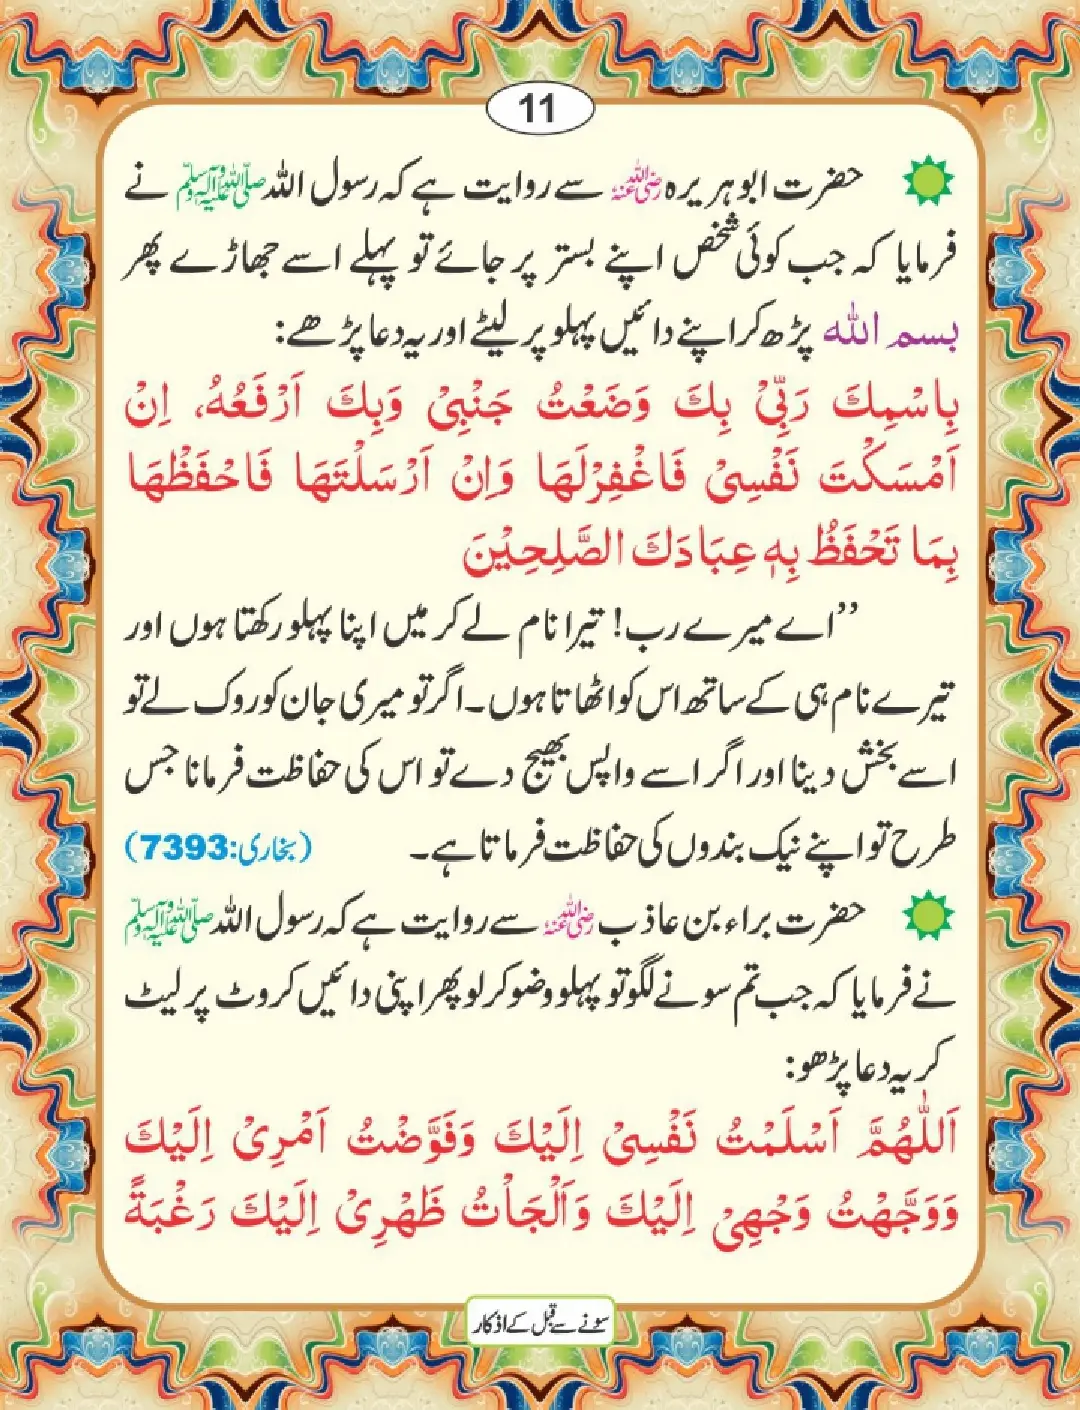 11
حضرت ابوہریرہ رضی اللہ عنہ سے روایت ہے کہ رسول اللہ صلی اللہ علیہ وآلہ وسلم نے
فرمایا کہ جب کوئی شخص اپنے بستر پر جائے تو پہلے اسے جھاڑے پھر
بسم اللہ پڑھ کر اپنے دائیں پہلو پر لیٹے اور یہ دعا پڑھے:
بِاسْمِكَ رَبِّیْ بِكَ وَضَعْتُ جَنْبِیْ وَبِكَ اَرْفَعُهُ، اِنْ
اَمْسَكْتَ نَفْسِیْ فَاغْفِرْلَهَا وَاِنْ اَرْسَلْتَهَا فَاحْفَظْهَا
بِمَا تَحْفَظُ بِهٖ عِبَادَكَ الصّٰلِحِیْنَ
’’اے میرے رب! تیرا نام لے کر میں اپنا پہلو رکھتا ہوں اور
تیرے نام ہی کے ساتھ اس کو اٹھاتا ہوں۔ اگر تو میری جان کو روک لے تو
اسے بخش دینا اور اگر اسے واپس بھیج دے تو اس کی حفاظت فرمانا جس
طرح تو اپنے نیک بندوں کی حفاظت فرماتا ہے۔ (بخاری:7393)
حضرت براء بن عاذب رضی اللہ عنہ سے روایت ہے کہ رسول اللہ صلی اللہ علیہ وآلہ وسلم
نے فرمایا کہ جب تم سونے لگو تو پہلو وضو کر لو پھر اپنی دائیں کروٹ پر لیٹ
کر یہ دعا پڑھو:
اَللّٰهُمَّ اَسْلَمْتُ نَفْسِیْ اِلَیْكَ وَفَوَّضْتُ اَمْرِیْ اِلَیْكَ
وَوَجَّهْتُ وَجْهِیْ اِلَیْكَ وَاَلْجَاْتُ ظَهْرِیْ اِلَیْكَ رَغْبَةً
سونے سے قبل کے اذکار